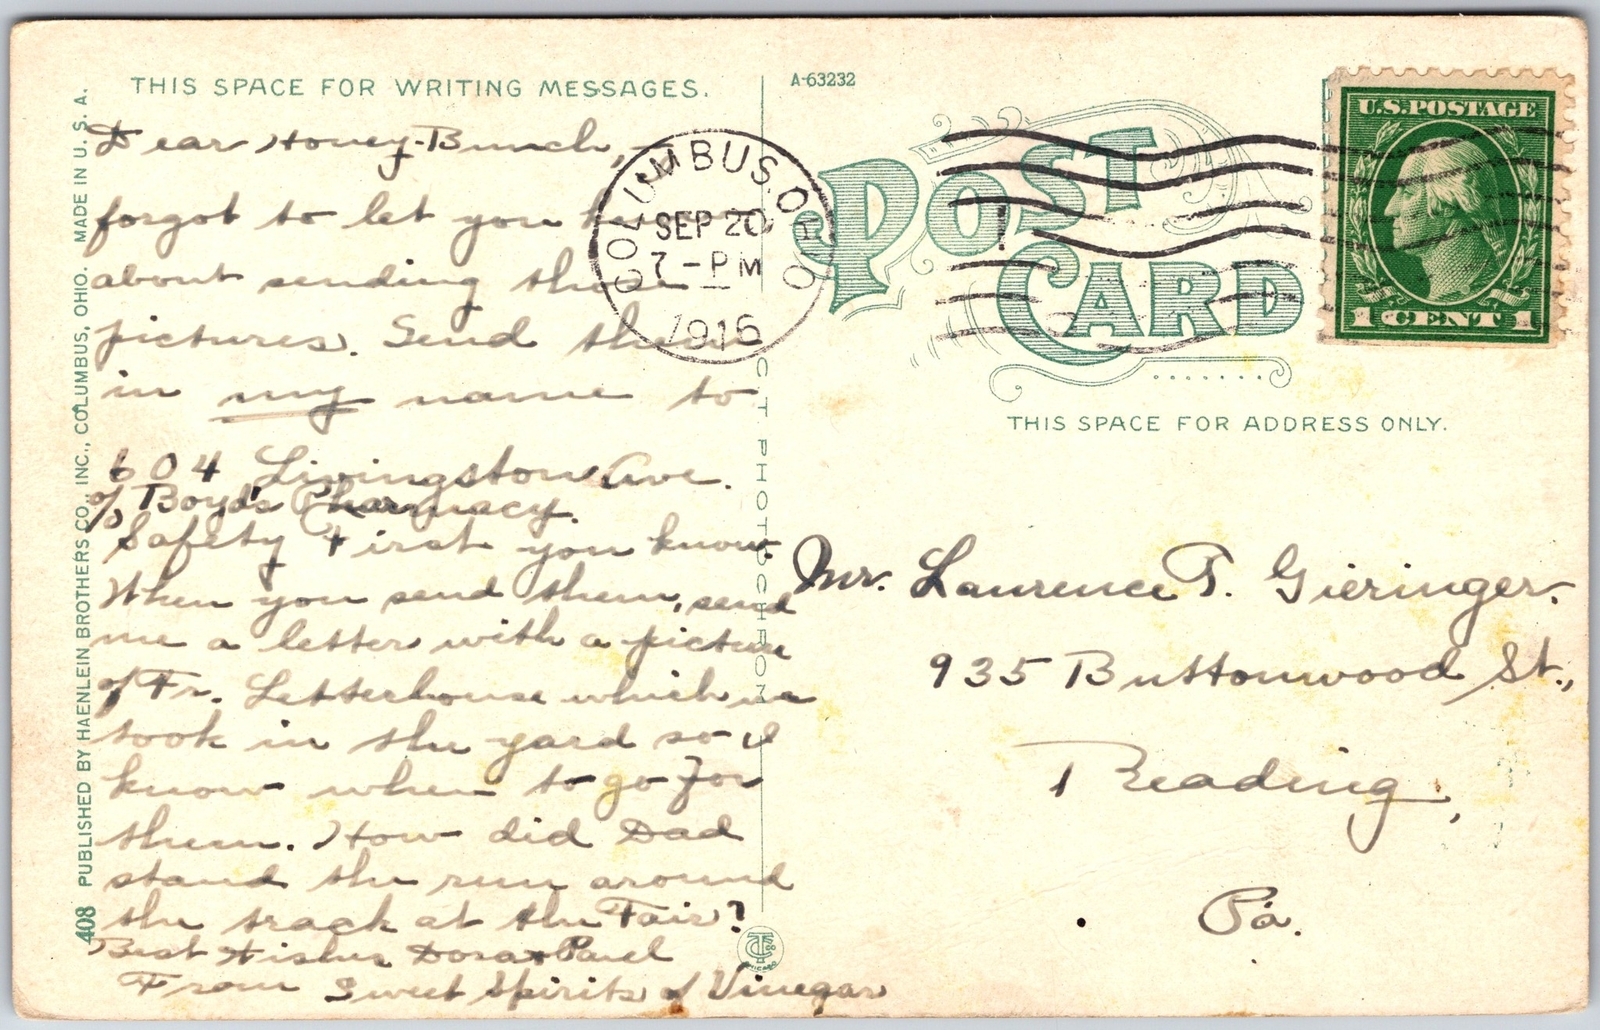 THIS SPACE FOR WRITING MESSAGES.
Dear Honey-Bunch,
forgot to let you
about sending these
pictures. Send them
in my name to
604 Livingston Ave.
c/o Boyd's Pharmacy.
Safety First you know.
When you send them, send
me a letter with a picture
of Fr. Letterhouse which we
took in the yard so I
know when to go for
them. How did Dad
stand the run around
the track at the Fair?
Best Wishes Dora + Paul
From Sweet Spirits of Vinegar
408 PUBLISHED BY HAENLEIN BROTHERS CO., INC., COLUMBUS, OHIO. MADE IN U. S. A.
C T PHOTOCHROM
A-63232
POST
CARD
COLUMBUS, OHIO
SEP 20
7-PM
1916
U.S. POSTAGE
1 CENT 1
THIS SPACE FOR ADDRESS ONLY.
Mr. Laurence T. Gieringer.
935 Buttonwood St.,
Reading,
Pa.